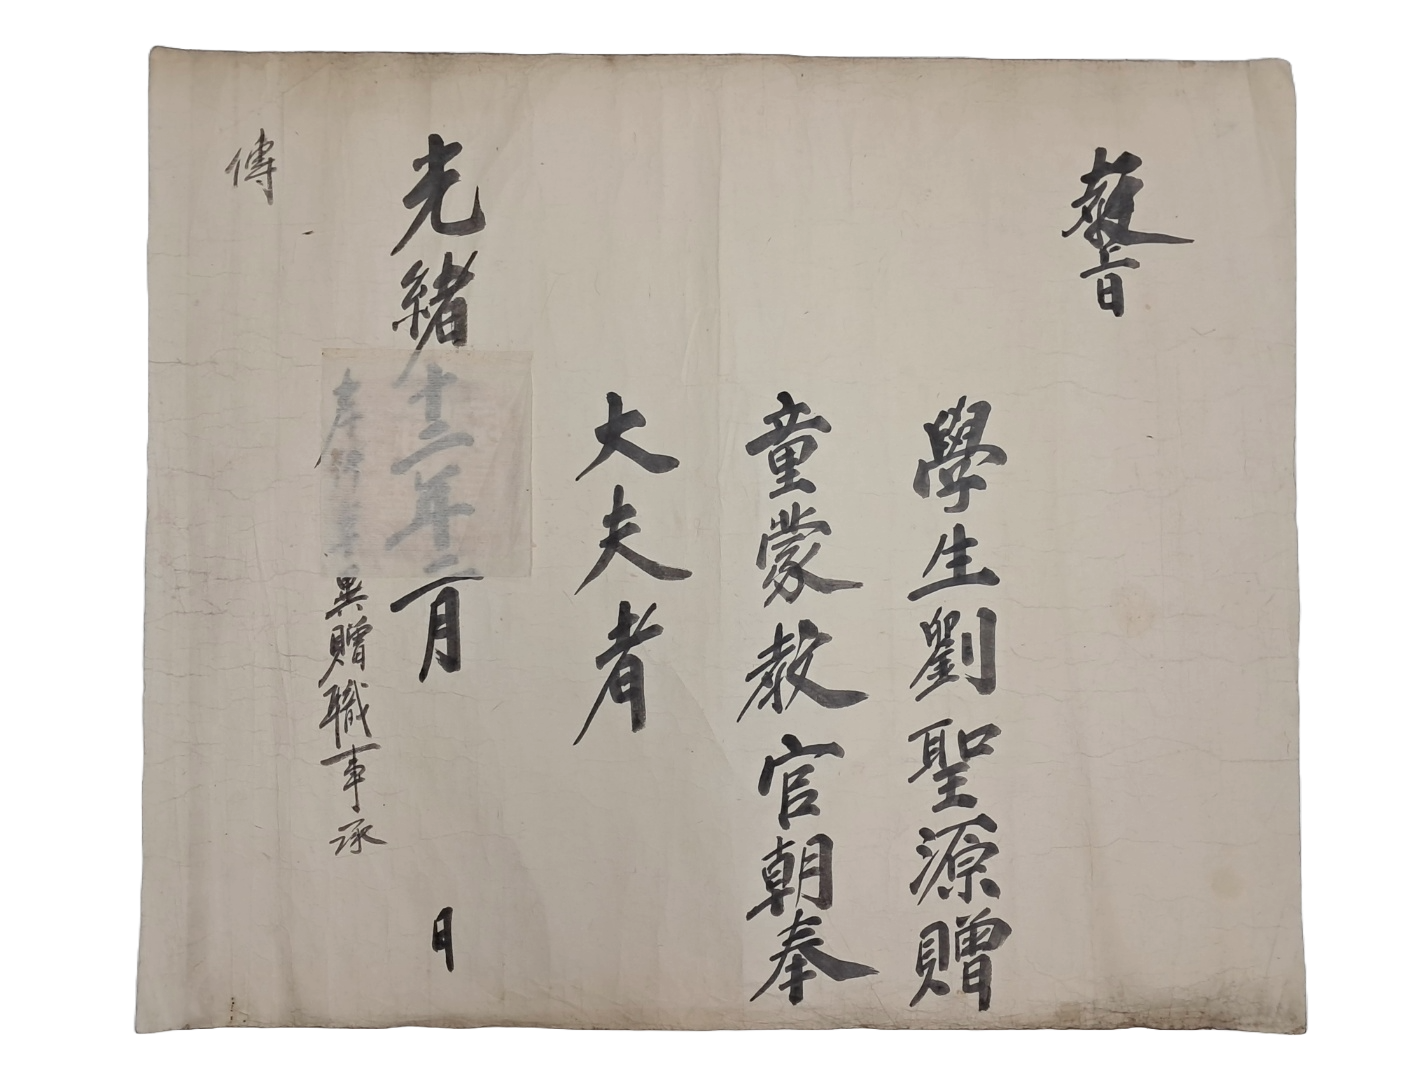 敎旨
學生劉聖源贈
童蒙敎官朝奉
大夫者
光緖十二年二月 日
異贈職事承
傳